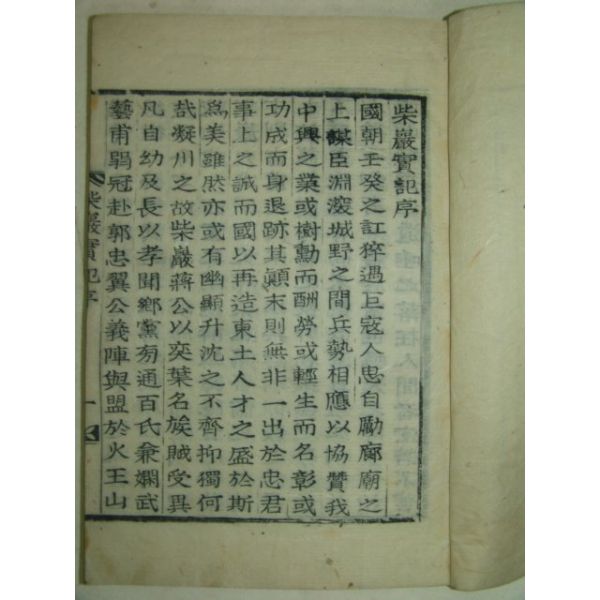 柴巖實記序
國朝壬癸之訌猝遇巨寇人思自勵廊廟之
上謀臣淵邃城野之間兵勢相應以協贊我
中興之業或樹勳而酬勞或輕生而名彰或
功成而身退跡其顚末則無非一出於忠君
事上之誠而國以再造東土人才之盛於斯
爲美雖然亦或有幽顯升沈之不齊抑獨何
哉凝川之故柴巖蔣公以奕葉名族賦受異
凡自幼及長以孝聞鄕黨旁通百氏兼嫺武
藝甫弱冠赴郭忠翼公義陣與盟於火王山
柴巖實記序
一